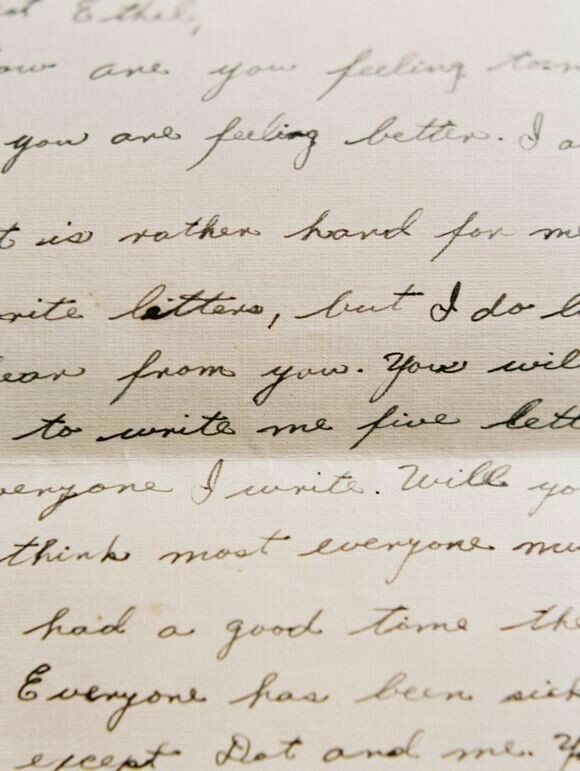 Ethel,
ow are you feeling
you are feeling better. I a
t is rather hard for me
rite letters, but I do l
ear from you. You will
to write me five lett
veryone I write. Will yo
think most everyone mu
had a good time the
Everyone has been sick
except Dot and me. Y